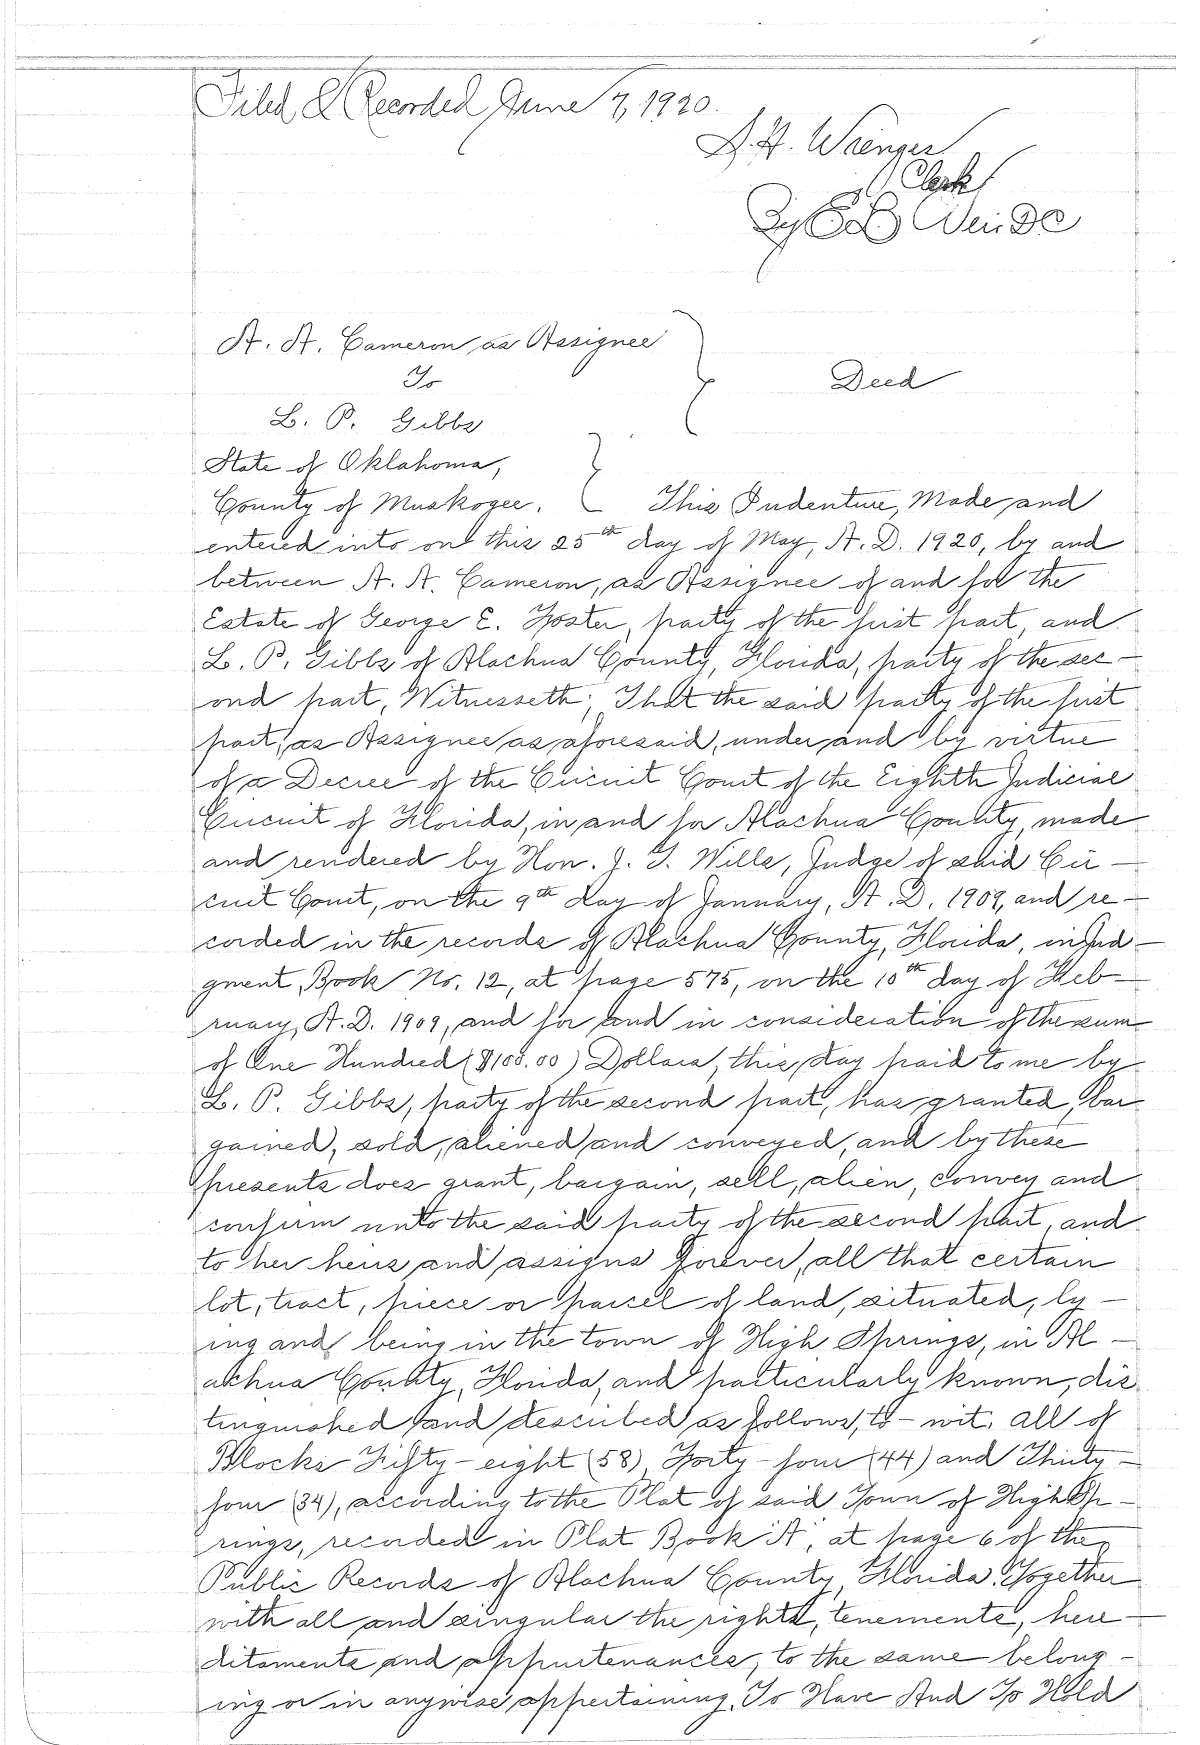 Filed & Recorded June 7, 1920.
S. H. Wienges
Clerk
By DC
A. A. Cameron as Assignee
To
L. P. Gibbs
Deed
State of Oklahoma,
County of Muskogee. This Indenture, Made and
entered into on this 25th day of May, A. D. 1920, by and
between A. A. Cameron, as Assignee of and for the
Estate of George E. Foster, party of the first part, and
L. P. Gibbs of Alachua County, Florida, party of the sec-
ond part, Witnesseth; That the said party of the first
part, as Assignee as aforesaid, under and by virtue
of a Decree of the Circuit Court of the Eighth Judicial
Circuit of Florida, in and for Alachua County, made
and rendered by Hon. J. T. Wills, Judge of said Cir-
cuit Court, on the 9th day of January, A. D. 1909, and re-
corded in the records of Alachua County, Florida, in Jud-
gment Book No. 12, at page 575, on the 10th day of Feb-
ruary, A. D. 1909, and for and in consideration of the sum
of One Hundred ($100.00) Dollars, this day paid to me by
L. P. Gibbs, party of the second part, has granted, bar
gained, sold, aliened and conveyed, and by these
presents does grant, bargain, sell, alien, convey and
confirm unto the said party of the second part, and
to her heirs and assigns forever, all that certain
lot, tract, piece or parcel of land, situated, ly-
ing and being in the town of High Springs, in Al-
achua County, Florida, and particularly known, dis
tinguished and described as follows, to-wit: all of
Blocks Fifty-eight (58), Forty-four (44) and Thirty-
four (34), according to the Plat of said Town of High Sp-
rings, recorded in Plat Book "A", at page 6 of the
Public Records of Alachua County, Florida. Together
with all and singular the rights, tenements, here-
ditaments and appurtenances, to the same belong-
ing or in anywise appertaining. To Have And To Hold